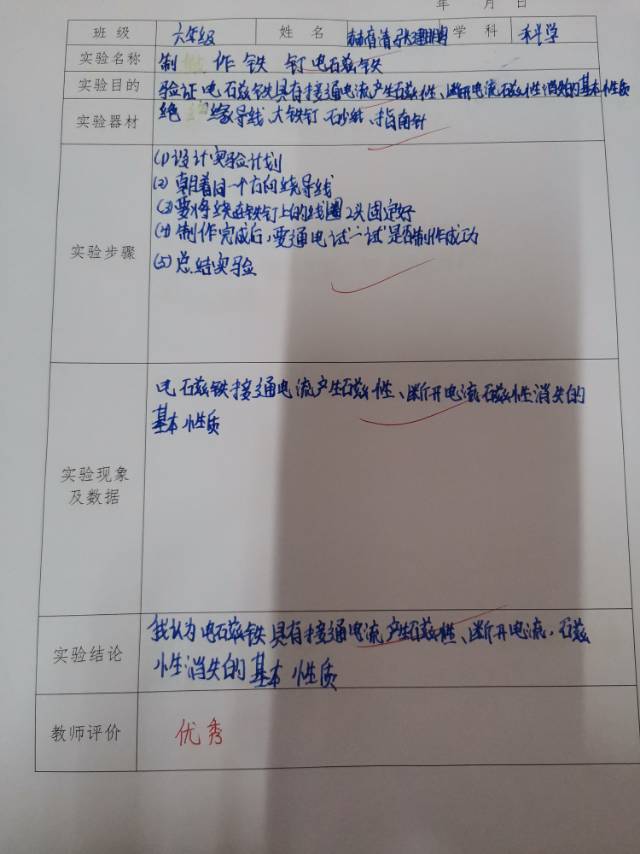 年 月 日
班 级 六年级 姓 名 学 科 科学
实验名称 制 作 铁 钉 电磁铁
实验目的 验证电磁铁具有接通电流产生磁性、断开电流磁性消失的基本性质
实验器材 绝 缘导线、大铁钉 砂纸、指南针
实验步骤
(1)设计实验计划
(2)朝着同一个方向绕导线
(3)要将绕在铁钉上的线圈2头固定好
(4)制作完成后,要通电试一试是否制作成功
(5)总结实验
实验现象
及数据
电磁铁接通电流产生磁性、断开电流磁性消失的
基本性质
实验结论
我认为电磁铁具有接通电流产生磁性、断开电流,磁
性消失的基本性质
教师评价 优秀